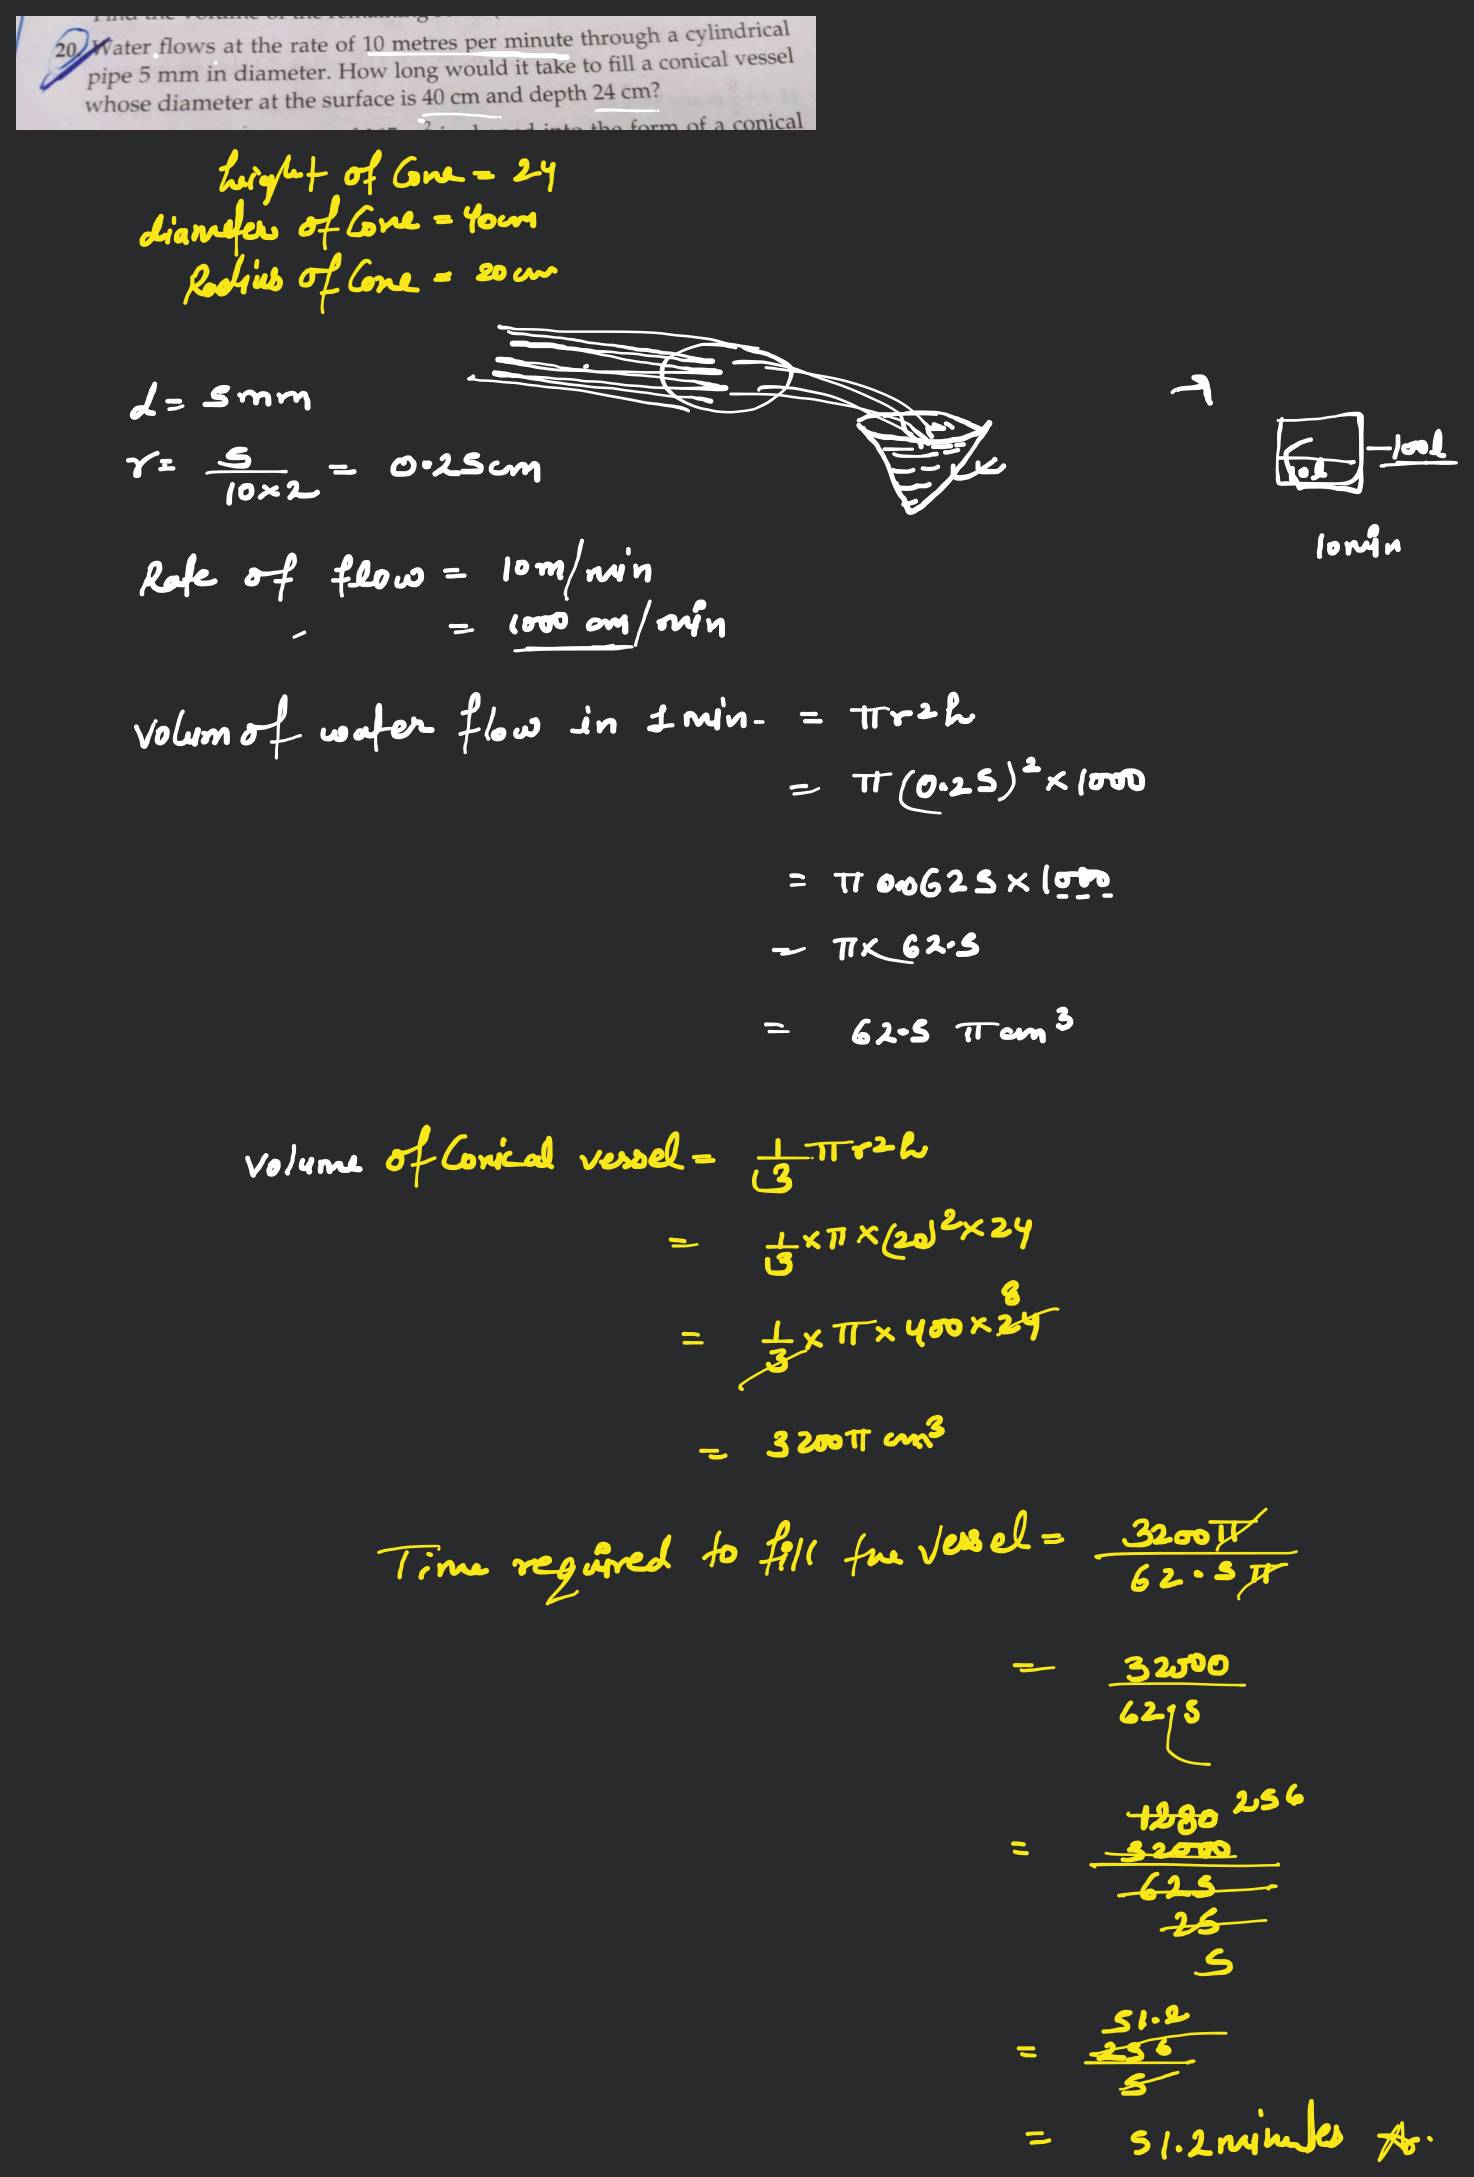 20. Water flows at the rate of 10 metres per minute through a cylindrical
pipe 5 mm in diameter. How long would it take to fill a conical vessel
whose diameter at the surface is 40 cm and depth 24 cm?
the form of a conical
height of Cone = 24
diameter of Cone = 40cm
Radius of Cone = 20cm
d = 5mm
r = 5/10×2 = 0.25cm
100l
10min
Rate of flow = 10m/min
= 1000 cm/min
Volum of water flow in 1 min. = πr²h
= π(0.25)²×1000
= π 0.0625×1000
= π× 62.5
= 62.5 π cm³
Volume of Conical vessel = 1/3 πr²h
= 1/3 ×π×(20)²×24
8
= 1/3 × π × 400×24
= 3200π cm³
Time required to fill the Vessel = 3200π/62.5π
= 32000/625
1280 256
= 32000/625
25
5
51.2
= 256/5
= 51.2 minutes